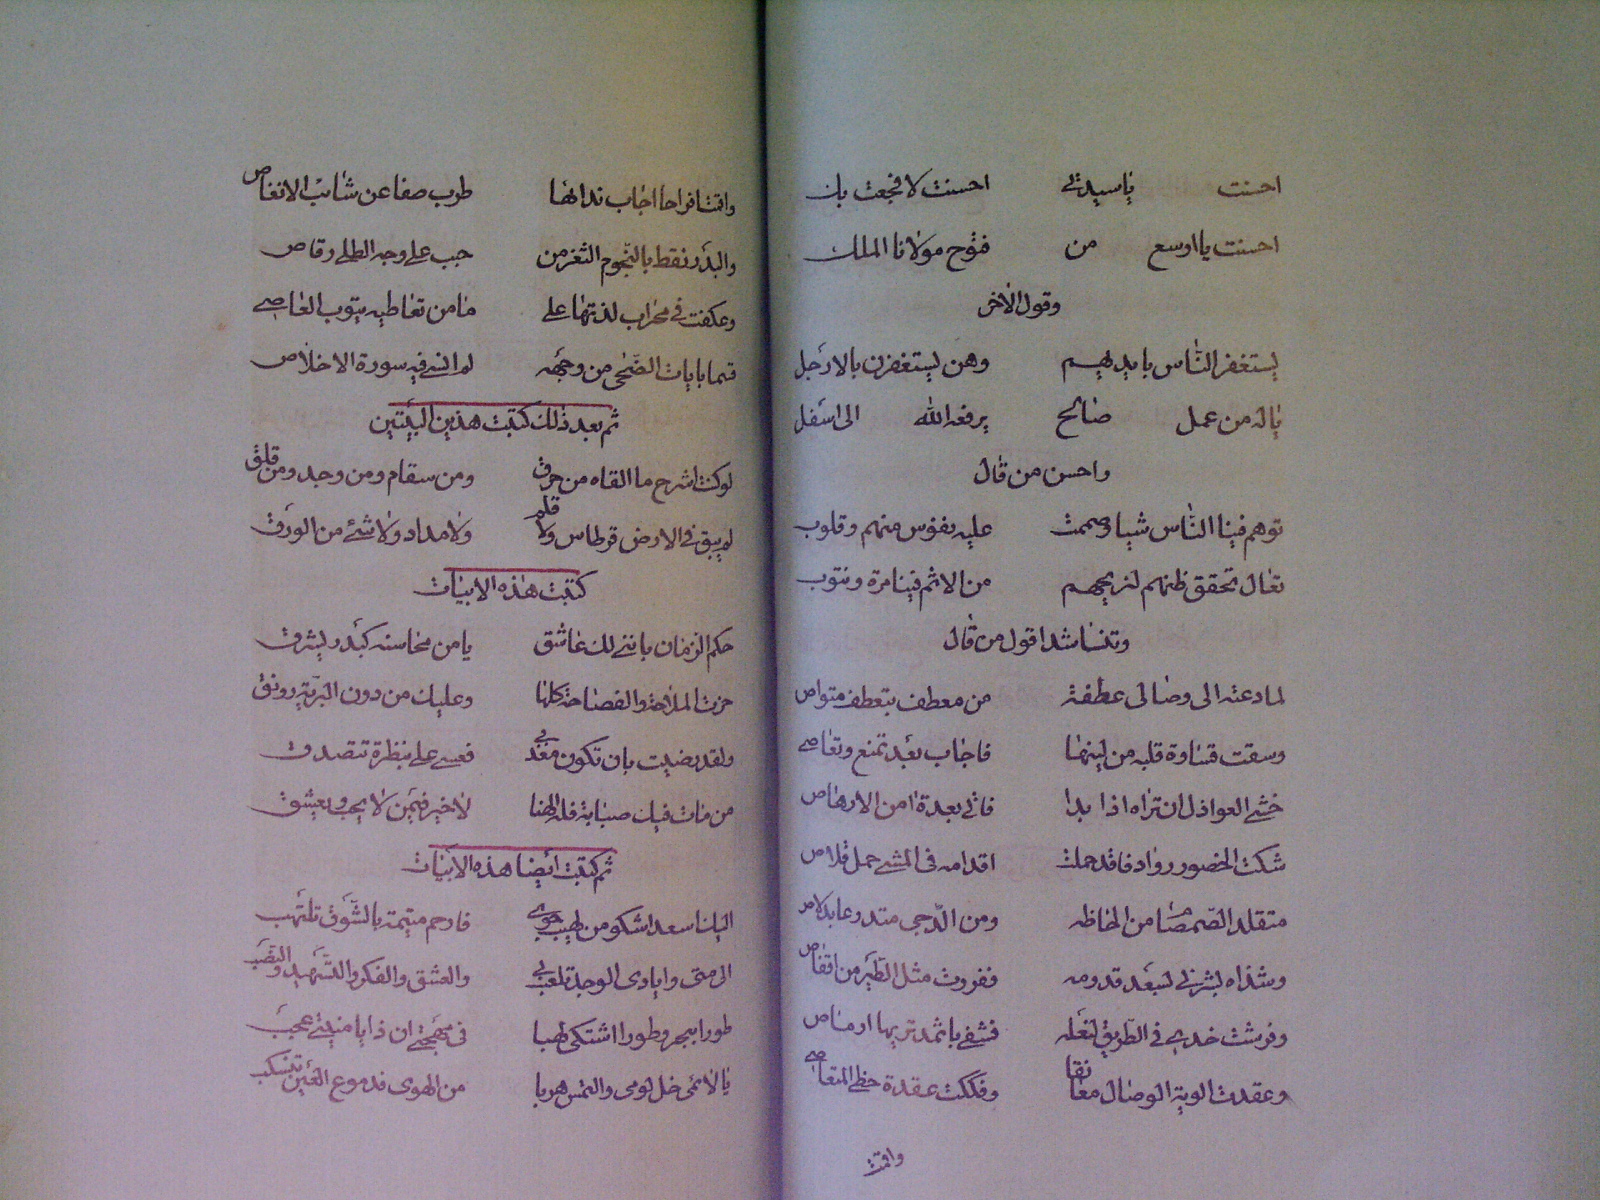 احسنت ياسيدتي احسنت لا فجعت بك
احسنت يا اوسع من فتوح مولانا الملك
وقول الاخر
يستغفر الناس بايديهم وهن يستغفرن بالارجل
ياله من عمل صالح يرفعه الله الى اسفل
واحسن من قال
توهم فينا الناس شيا وصممت عليه نفوس منهم وقلوب
تعال تحقق ظنهم لنريحهم من الاثم فينا مرة ونتوب
وتناشدا قول من قال
لما دعته الى وصالى عطفة من معطف بتعطف متواص
وسقت قساوة قلبه من لينها فاجاب بعد تمنع وتعاصى
خشى العواذل ان تراه اذا بدا فاتى بعدة امن الارهاص
شكت الخصور روادفا قد حملت اقدامه فى المشى حمل قلاص
متقلد الصمصام من الحاظه ومن الدجى متدرعا بدلاص
وشذاه بشرنى لسعد قدومه ففررت مثل الطير من اقفاص
وفرشت خدى فى الطريق لنعله فشفى باثمد تربها ارماص
وعقدت الوية الوصال معانقا وفككت عقدة حظى المتعاصى
واقمت
واقمت افراحا اجاب نداءها طرب صفا عن شائب الانغاص
والبدر نقط بالنجوم الثغر من حبب على وجه الطلى رقاص
وعكفت فى محراب لذتها على ما من تعاطيه يتوب العاصى
قسما بايات الضحى من وجهه لم انس فيه سورة الاخلاص
ثم بعد ذلك كتبت هذين البيتين
لو كنت اشرح ما القاه من حرق ومن سقام ومن وجد ومن قلق
لم يبق فى الارض قرطاس ولا قلم ولا مداد ولا شئ من الورق
كتبت هذه الابيات
حكم الزمان باننى لك عاشق يا من محاسنه كبدر يشرق
حزت الملاحة والفصاحة كلها وعليك من دون البرية رونق
ولقد رضيت بان تكون معذبى فعسى على بنظرة تتصدق
من مات فيك صبابة فله الهنا لا خير فيمن لا يحب ويعشق
ثم كتبت ايضا هذه الابيات
اليك اسعد اشكو من لهيب جوى فارحم متيمة بالشوق تلتهب
الى متى وايادى الوجد تلعب بى والعشق والفكر والتسهيد والنصب
طورا ببحر وطورا اشتكى لهبا فى مهجتى ان ذا يا منيتى عجب
يا لائمى خل لومى والتمس هربا من الهوى فدموع العين تنسكب